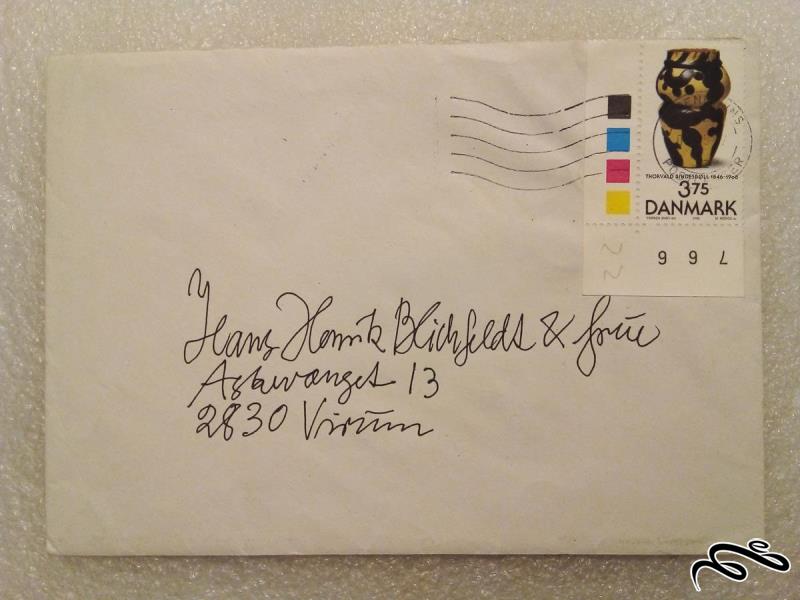 THORVALD BINDESBØLL 1846-1908
375
DANMARK
22
766
Hans Henrik Blichfeldt & frue
Askevænget 13
2830 Virum